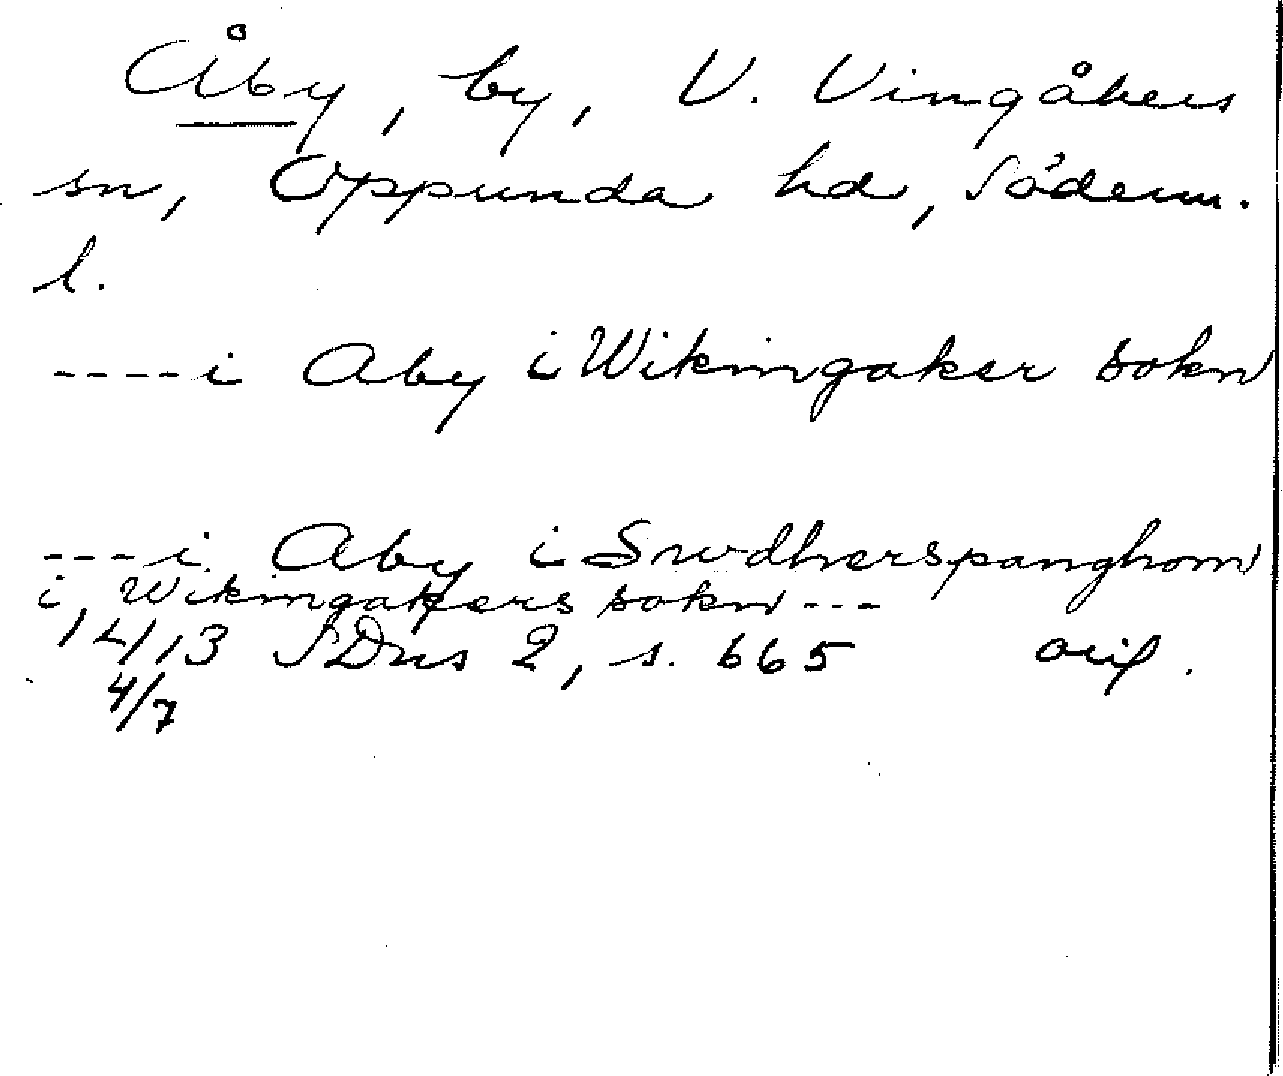 Åby, by, V. Vingåkers
sn, Oppunda hd, Söderm.
l.
----i Aby i Wikingaker sokn
---i Aby i Swdherspanghom
i Wikingakers sokn---
1413 SDns 2, s. 665 orig.
4/7